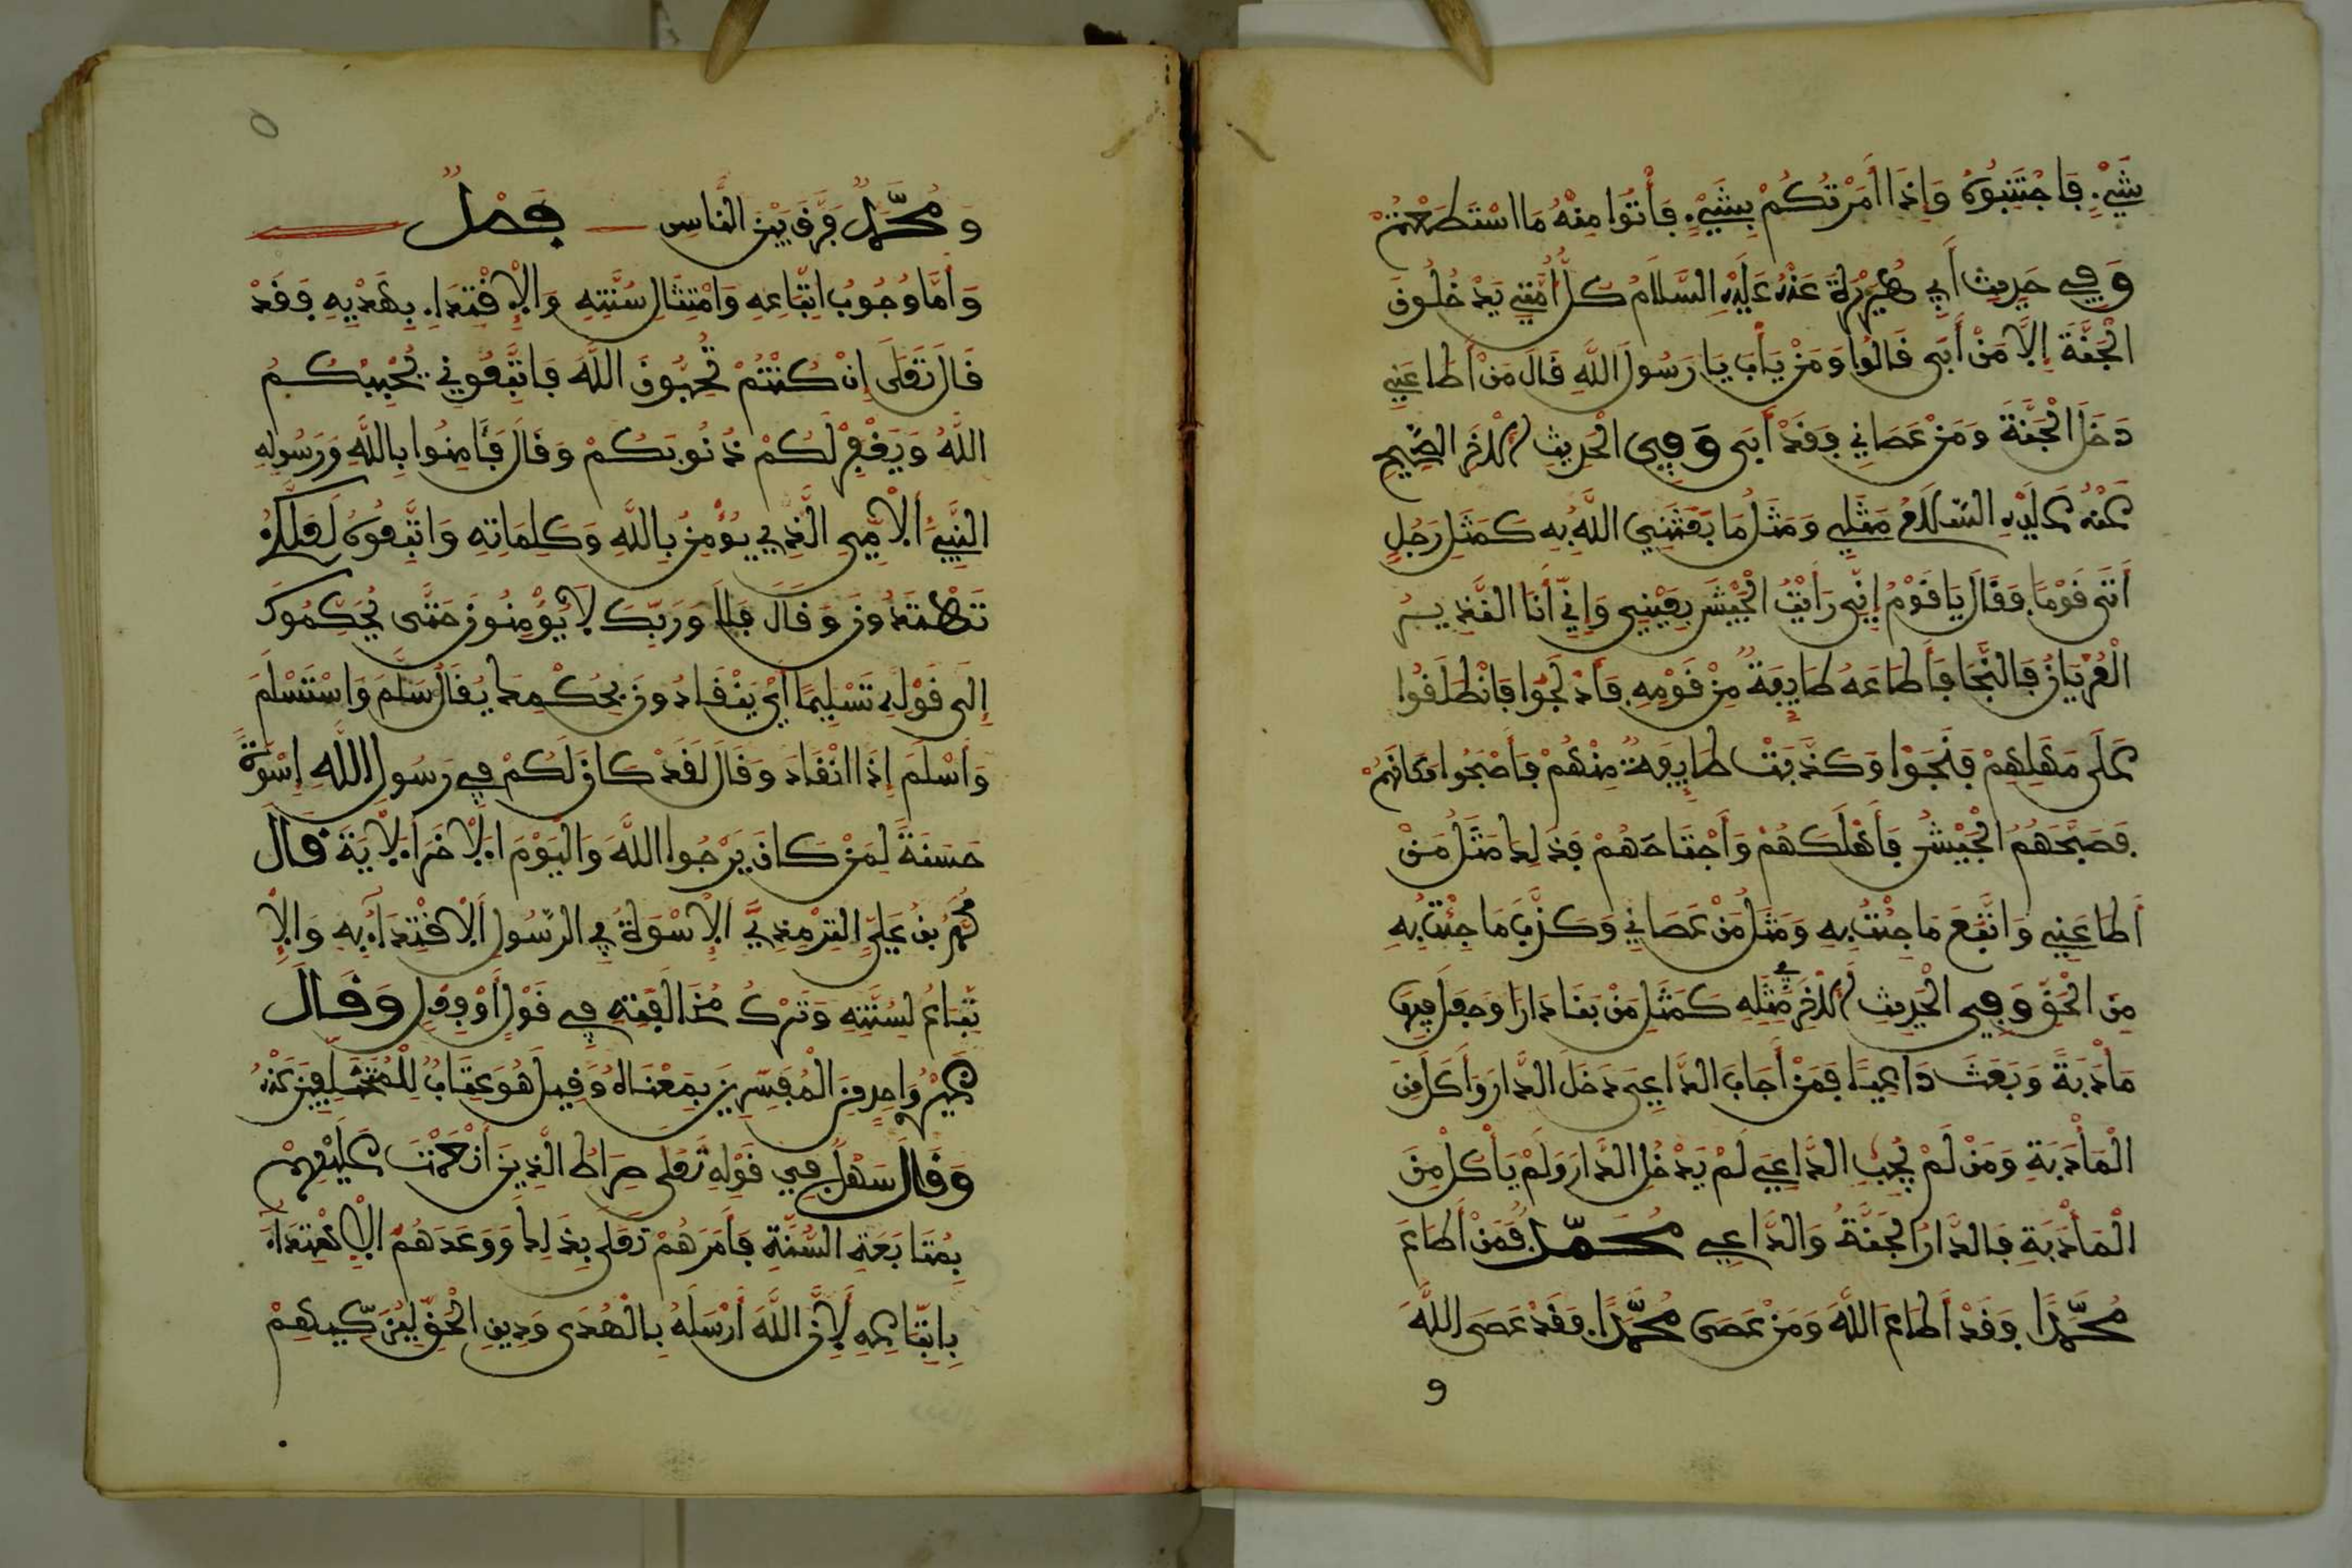 شَيْءٍ فَاجْتَنِبُوهُ وَإِذَا أَمَرْتُكُمْ بِشَيْءٍ فَأْتُوا مِنْهُ مَا اسْتَطَعْتُمْ
وَفِي حَدِيثِ أَبِي هُرَيْرَةَ عَنْهُ عَلَيْهِ السَّلَامُ كُلُّ أُمَّتِي يَدْخُلُونَ
الْجَنَّةَ إِلَّا مَنْ أَبَى قَالُوا وَمَنْ يَأْبَى يَا رَسُولَ اللَّهِ قَالَ مَنْ أَطَاعَنِي
دَخَلَ الْجَنَّةَ وَمَنْ عَصَانِي فَقَدْ أَبَى وَفِي الْحَدِيثِ الْآخَرِ الصَّحِيحِ
عَنْهُ عَلَيْهِ السَّلَامُ مَثَلِي وَمَثَلُ مَا بَعَثَنِي اللَّهُ بِهِ كَمَثَلِ رَجُلٍ
أَتَى قَوْمًا فَقَالَ يَا قَوْمُ إِنِّي رَأَيْتُ الْجَيْشَ بِعَيْنِي وَإِنِّي أَنَا النَّذِيرُ
الْعُرْيَانُ فَالنَّجَا فَأَطَاعَهُ طَايِفَةٌ مِنْ قَوْمِهِ فَأَدْلَجُوا فَانْطَلَقُوا
عَلَى مَهَلِهِمْ فَنَجَوْا وَكَذَّبَتْ طَايِفَةٌ مِنْهُمْ فَأَصْبَحُوا مَكَانَهُمْ
فَصَبَّحَهُمُ الْجَيْشُ فَأَهْلَكَهُمْ وَاجْتَاحَهُمْ فَذَلِكَ مَثَلُ مَنْ
أَطَاعَنِي وَاتَّبَعَ مَا جِئْتُ بِهِ وَمَثَلُ مَنْ عَصَانِي وَكَذَّبَ مَا جِئْتُ بِهِ
مِنَ الْحَقِّ وَفِي الْحَدِيثِ الْآخَرِ فِي مَثَلِهِ كَمَثَلِ مَنْ بَنَا دَارًا وَجَعَلَ فِيهَا
مَأْدَبَةً وَبَعَثَ دَاعِيًا فَمَنْ أَجَابَ الدَّاعِيَ دَخَلَ الدَّارَ وَأَكَلَ مِنَ
الْمَأْدَبَةِ وَمَنْ لَمْ يُجِبِ الدَّاعِيَ لَمْ يَدْخُلِ الدَّارَ وَلَمْ يَأْكُلْ مِنَ
الْمَأْدَبَةِ فَالدَّارُ الْجَنَّةُ وَالدَّاعِي مُحَمَّدٌ فَمَنْ أَطَاعَ
مُحَمَّدًا فَقَدْ أَطَاعَ اللَّهَ وَمَنْ عَصَى مُحَمَّدًا فَقَدْ عَصَى اللَّهَ
و
٥
وَمُحَمَّدٌ فَرَّقَ بَيْنَ النَّاسِ فَصْلٌ
وَأَمَّا وُجُوبُ اتِّبَاعِهِ وَامْتِثَالِ سُنَّتِهِ وَالْاِقْتِدَاءِ بِهَدْيِهِ فَقَدْ
قَالَ تَعَلَى إِنْ كُنْتُمْ تُحِبُّونَ اللَّهَ فَاتَّبِعُونِي يُحْبِبْكُمُ
اللَّهُ وَيَغْفِرْ لَكُمْ ذُنُوبَكُمْ وَقَالَ فَآمِنُوا بِاللَّهِ وَرَسُولِهِ
النَّبِيءِ الْأُمِّيِّ الَّذِي يُؤْمِنُ بِاللَّهِ وَكَلِمَاتِهِ وَاتَّبِعُوهُ لَعَلَّكُمْ
تَهْتَدُونَ وَقَالَ فَلَا وَرَبِّكَ لَا يُؤْمِنُونَ حَتَّى يُحَكِّمُوكَ
إِلَى قَوْلِهِ تَسْلِيمًا أَيْ يَنْقَادُونَ بِحُكْمِكَ يُقَالُ سَلَّمَ وَاسْتَسْلَمَ
وَأَسْلَمَ إِذَا انْقَادَ وَقَالَ لَقَدْ كَانَ لَكُمْ فِي رَسُولِ اللَّهِ إِسْوَةٌ
حَسَنَةٌ لِمَنْ كَانَ يَرْجُوا اللَّهَ وَالْيَوْمَ الْآخَرَ الْآيَةَ قَالَ
مُحَمَّدُ بْنُ عَلِيٍّ التِّرْمِذِيُّ الْإِسْوَةُ فِي الرَّسُولِ الْاِقْتِدَاءُ بِهِ وَالْاِ
تِّبَاعُ لِسُنَّتِهِ وَتَرْكُ مُخَالَفَتِهِ فِي قَوْلٍ أَوْ فِعْلٍ وَقَالَ
غَيْرُ وَاحِدٍ مِنَ الْمُفَسِّرِينَ بِمَعْنَاهُ وَقِيلَ هُوَ عِتَابٌ لِلْمُتَخَلِّفِينَ عَنْهُ
وَقَالَ سَهْلٌ فِي قَوْلِهِ تَعَلَى صِرَاطَ الَّذِينَ أَنْعَمْتَ عَلَيْهِمْ
بِمُتَابَعَةِ السُّنَّةِ فَأَمَرَهُمْ تَعَلَى بِذَلِكَ وَوَعَدَهُمُ الْاِهْتِدَاءَ
بِاتِّبَاعِهِ لِأَنَّ اللَّهَ أَرْسَلَهُ بِالْهُدَى وَدِينِ الْحَقِّ لِيُزَكِّيَهُمْ